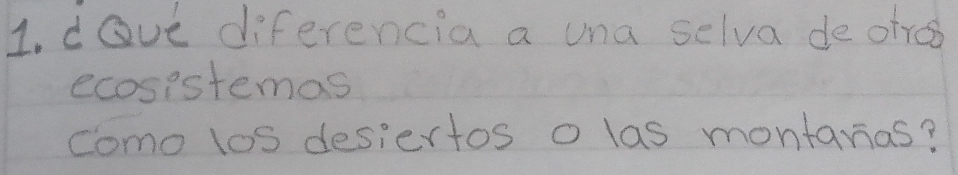 1. ¿Qué diferencia a una selva de otros
ecosistemas
como los desiertos o las montañas?